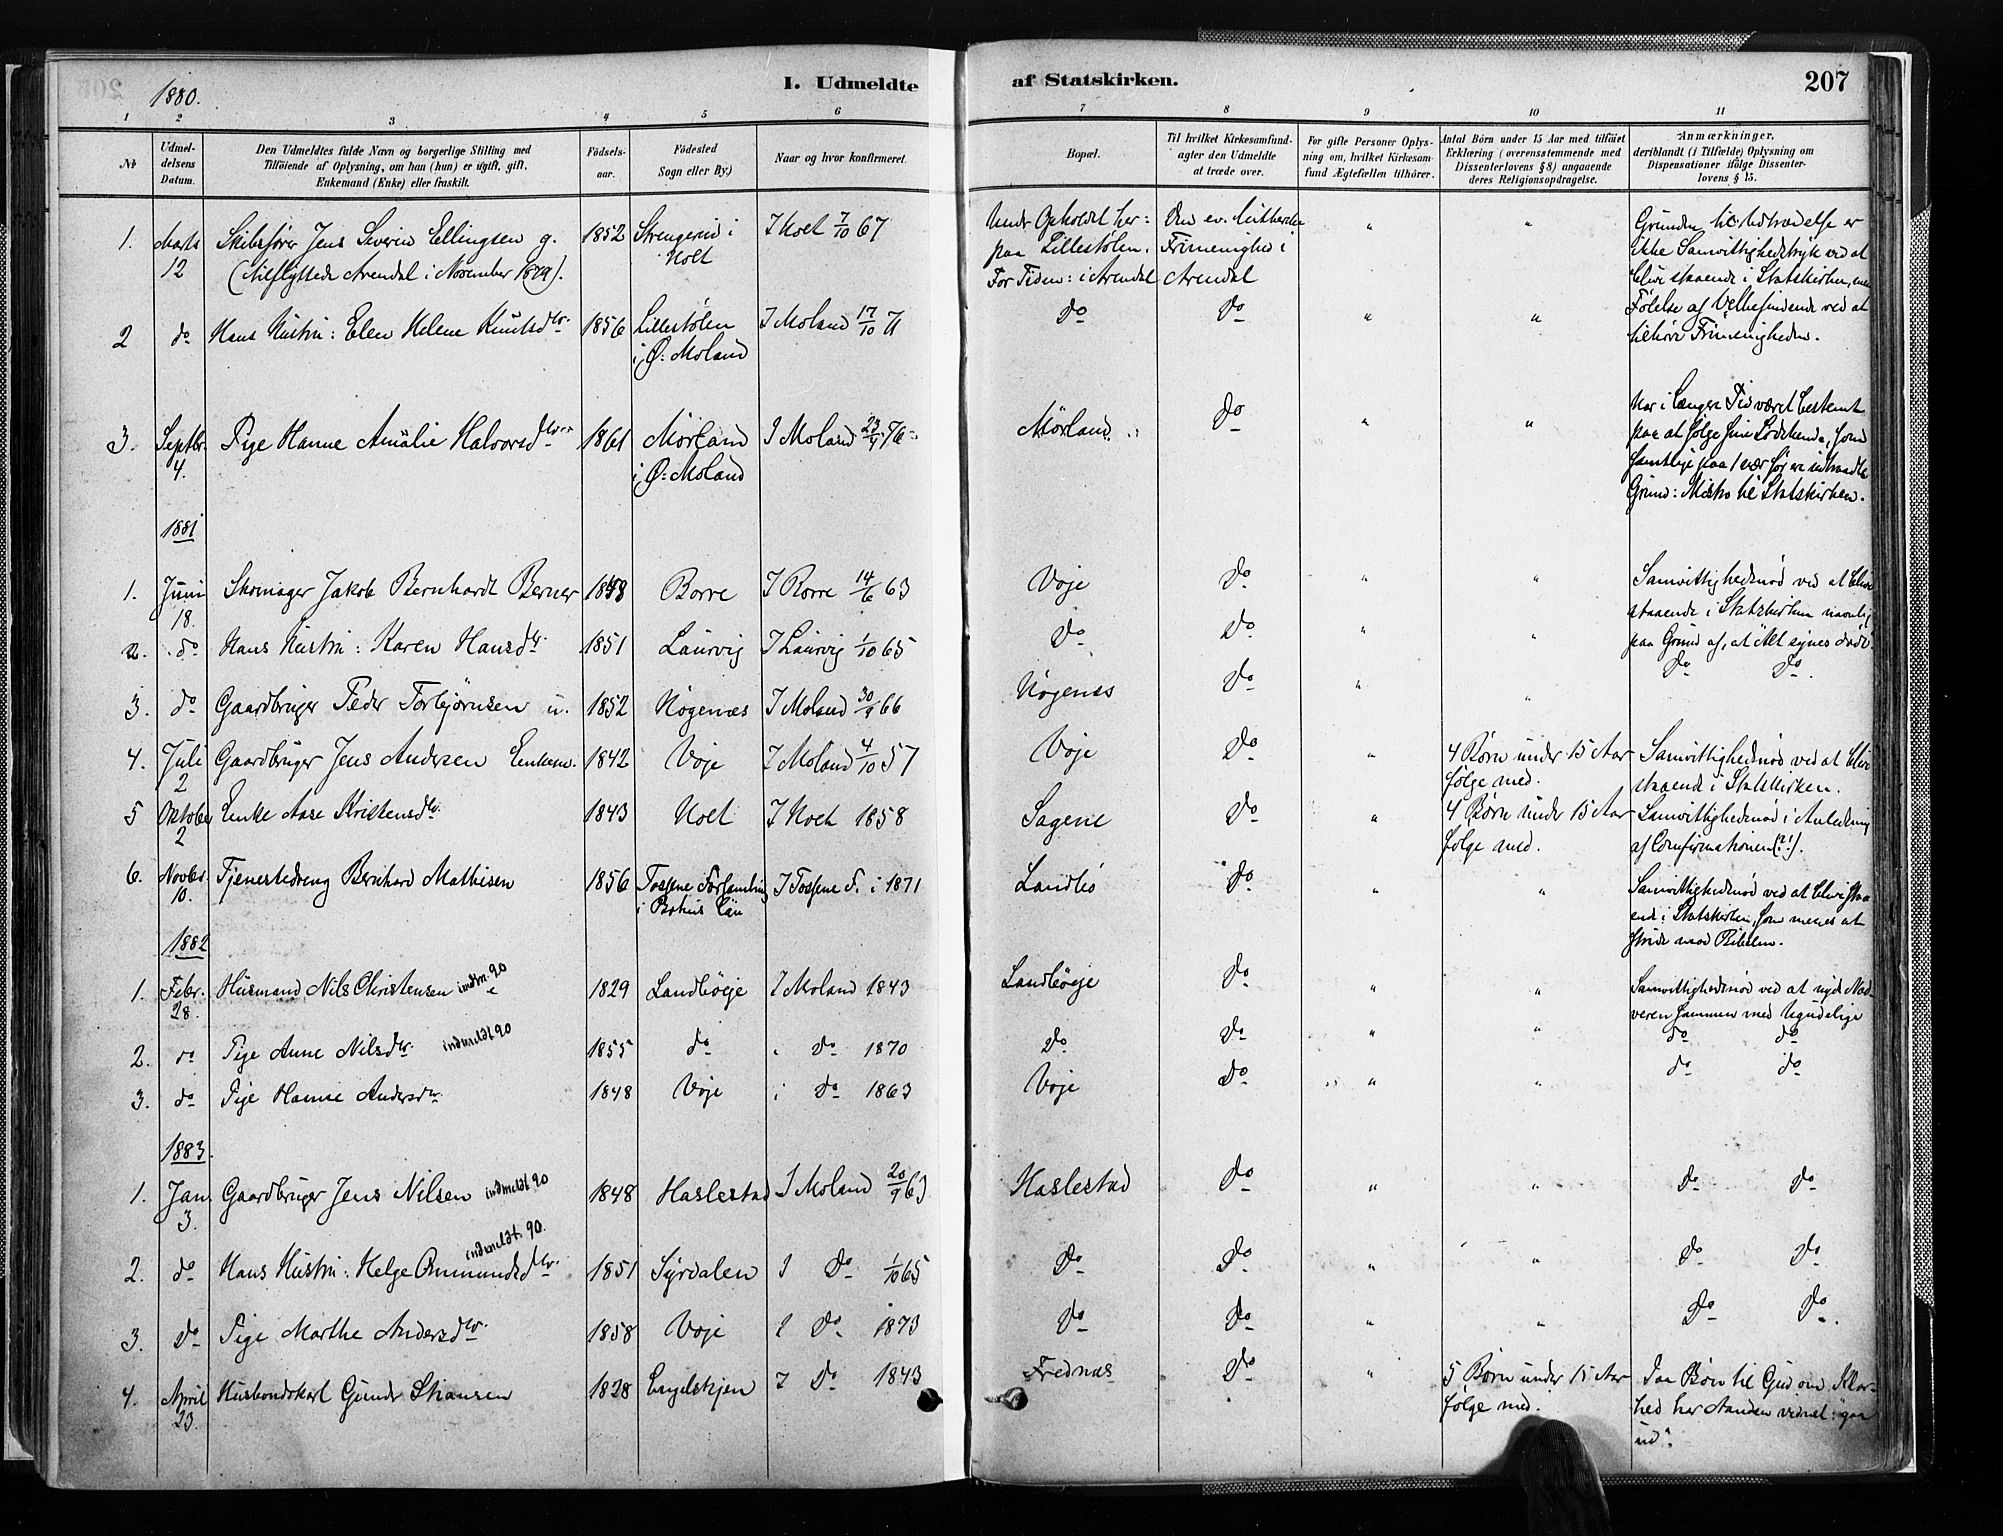 1880.
I. Udmeldte
af Statskirken.
207
1 2 3 4 5 6 7 8 9 10 11
Nr
Udmeldelsens Datum.
Den Udmeldtes fulde Navn og borgerlige Stilling med
Tilföiende af Oplysning, om han (hun) er ugift, gift,
Enkemand (Enke) eller fraskilt.
Födselsaar.
Födested
Sogn eller By.)
Naar og hvor konfirmeret.
Bopæl.
Til hvilket Kirkesamfund-
agter den Udmeldte
at træde over.
For gifte Personer Oplys-
ning om, hvilket Kirkesam-
fund Ægtefællen tilhörer.
Antal Börn under 15 Aar med tilföiet
Erklæring (overensstemmende med
Dissenterlovens § 8) angaaende
deres Religionsopdragelse.
Anmærkninger,
deriblandt (i Tilfælde) Oplysning om
Dispensationer ifölge Dissenter-
lovens § 15.
1. Marts 12 Skibsfører Jens Severin Ellingsen g. 1852 Strengereid i Holt I Holt 7/10 67
(tilflyttede Arendal i November 1879).
Under Opholdet her: paa Lillestølen. For Tiden: i Arendal
Den ev. lutherske Frimenighed i Arendal " "
Grunden til Udtrædelse er
ikke Samvittighedstryk ved at
blive staaende i Statskirken, men
Følelse af Velbefindende ved at
tilhøre Frimenigheden.
2 do Hans Hustru: Elen Helene Knutsdtr. 1856 Lillestølen i Ø: Moland I Moland 17/10 71 do do " "
3. Septbr. 4. Pige Hanne Amalie Halvorsdtr. 1861 Mørland i Ø: Moland I Moland 23/9 76 Mørland. do " "
Har i længere Tid været bestemt
paa at følge sine Sødskende, som
samtlige paa 1 nær før ere udtraadte
Grund: Mistro til Statskirken.
1881
1. Juni 18. Skomager Jakob Bernhardt Berner 1848 Borre I Borre 14/6 63 Voje do " "
Samvittighedsnød ved at blive
staaende i Statskirken navnlig
paa Grund af, at Alt synes dødt
2. do Hans Hustru: Karen Hansdtr. 1851 Laurvig I Laurvig 1/10 65 do do " "
do do.
3. do Gaardbruger Peder Torbjørnsen u. 1852 Høgenæs I Moland 30/9 66 Høgenes do " "
4. Juli 2 Gaardbruger Jens Andersen Enkem. 1842 Voje I Moland 4/10 57 Voje do " 4 Børn under 15 Aar følge med.
Samvittighedsnød ved at blive
staaende i Statskirken.
5 Oktober 2 Enke Aase Kristensdtr. 1843 Holt I Holt 1858 Sagene do " 4 Børn under 15 Aar følge med.
Samvittighedsnød i Anledning
af Confirmationen(?!).
6. Novbr. 10. Tjenestedreng Bernhard Mathisen 1856 Tossene Forsamling i Bohus Län I Tossene F. i 1871 Landbø do " "
Samvittighedsnød ved at blive staa-
ende i Statskirken, som menes at
stride mod Bibelen.
1882
1. Febr. 28. Husmand Nils Christensen indm. 90 1829 Landbøeje I Moland 1843 Landbøeje do " "
Samvittighedsnød ved at nyde Nad-
veren sammen med Ugudelige
2. do Pige Anne Nilsdtr. indmeldt 90 1855 do i do 1870 do do " " do do
3. do Pige Hanne Andersdtr. 1848 Voje i do 1863 Voje do " " do do
1883.
1. Jan 3. Gaardbruger Jens Nilsen indmeldt 90 1848 Haslestad I Moland 20/9 63 Haslestad do " " do do
2. do Hans Hustru: Helge Ommundsdtr. indmeldt 90. 1851 Syrdalen I do 1/10 65 do do " " do do
3. do Pige Marthe Andersdtr. 1858 Voje I do 1873 do do " " do do.
4. April 23. Husbondskarl Gunder 1828 Engelskjen I do 1843 Frednæs do " 5 Børn under 15 Aar følge med.
Paa Bøn til Gud om Klar-
hed har Aanden vidnet: "gaa
ud".